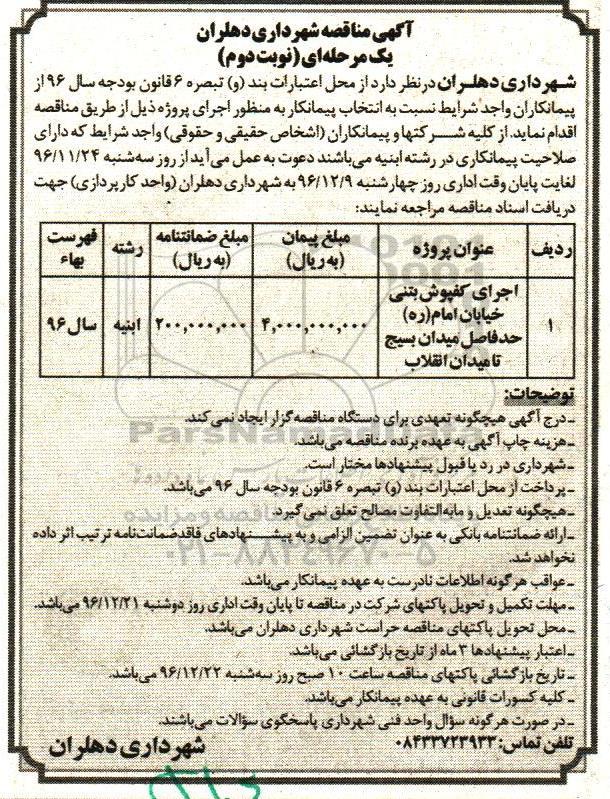 آگهی مناقصه شهرداری دهلران
یک مرحله‌ای (نوبت دوم)
شهرداری دهلران در نظر دارد از محل اعتبارات بند (و) تبصره ۶ قانون بودجه سال ۹۶ از
پیمانکاران واجد شرایط نسبت به انتخاب پیمانکار به منظور اجرای پروژه ذیل از طریق مناقصه
اقدام نماید. از کلیه شرکتها و پیمانکاران (اشخاص حقیقی و حقوقی) واجد شرایط که دارای
صلاحیت پیمانکاری در رشته ابنیه می‌باشند دعوت به عمل می‌آید از روز سه‌شنبه ۹۶/۱۱/۲۴
لغایت پایان وقت اداری روز چهارشنبه ۹۶/۱۲/۹ به شهرداری دهلران (واحد کارپردازی) جهت
دریافت اسناد مناقصه مراجعه نمایند:
ردیف	عنوان پروژه	مبلغ پیمان (به ریال)	مبلغ ضمانتنامه (به ریال)	رشته	فهرست بهاء
۱	اجرای کفپوش بتنی خیابان امام(ره) حدفاصل میدان بسیج تا میدان انقلاب	۴,۰۰۰,۰۰۰,۰۰۰	۲۰۰,۰۰۰,۰۰۰	ابنیه	سال ۹۶
توضیحات:
ـ درج آگهی هیچگونه تعهدی برای دستگاه مناقصه‌گزار ایجاد نمی‌کند.
ـ هزینه چاپ آگهی به عهده برنده مناقصه می‌باشد.
ـ شهرداری در رد یا قبول پیشنهادها مختار است.
ـ پرداخت از محل اعتبارات بند (و) تبصره ۶ قانون بودجه سال ۹۶ می‌باشد.
ـ هیچگونه تعدیل و مابه‌التفاوت مصالح تعلق نمی‌گیرد.
ـ ارائه ضمانتنامه بانکی به عنوان تضمین الزامی و به پیشنهادهای فاقد ضمانت‌نامه ترتیب اثر داده
نخواهد شد.
ـ عواقب هرگونه اطلاعات نادرست به عهده پیمانکار می‌باشد.
ـ مهلت تکمیل و تحویل پاکتهای شرکت در مناقصه تا پایان وقت اداری روز دوشنبه ۹۶/۱۲/۲۱ می‌باشد.
ـ محل تحویل پاکتهای مناقصه حراست شهرداری دهلران می‌باشد.
ـ اعتبار پیشنهادها ۳ ماه از تاریخ بازگشائی می‌باشد.
ـ تاریخ بازگشائی پاکتهای مناقصه ساعت ۱۰ صبح روز سه‌شنبه ۹۶/۱۲/۲۲ می‌باشد.
ـ کلیه کسورات قانونی به عهده پیمانکار می‌باشد.
ـ در صورت هرگونه سؤال واحد فنی شهرداری پاسخگوی سؤالات می‌باشند.
تلفن تماس: ۰۸۴۳۳۷۲۳۹۳۳
شهرداری دهلران
ParsNamadData
۰۲۱-۸۸۳۴۹۶۷۰-۵